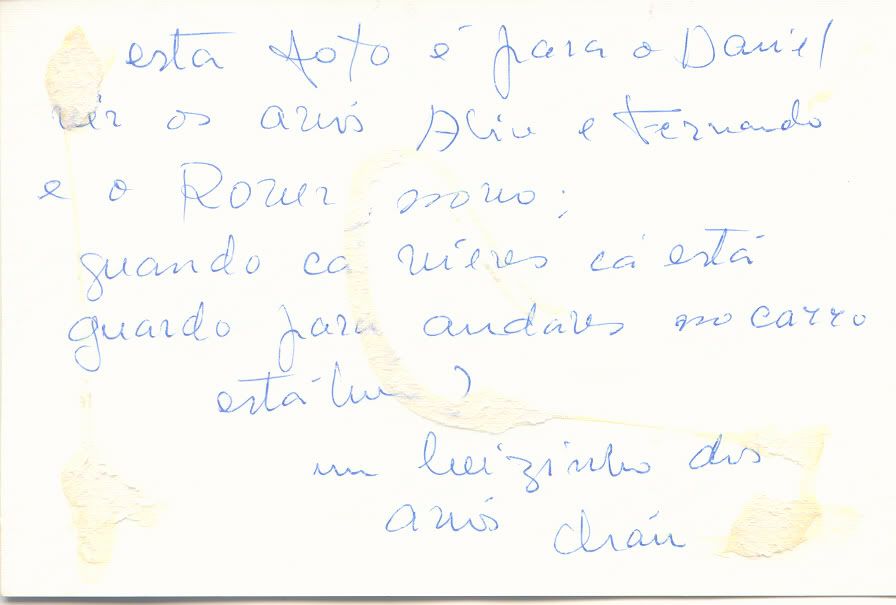 esta foto é para o Daniel
vêr os avós Aliu e Fernando
e o Rover novo;
quando ca vieres cá está
guardo para andares no carro
está bem?
um beizinho dos
avós